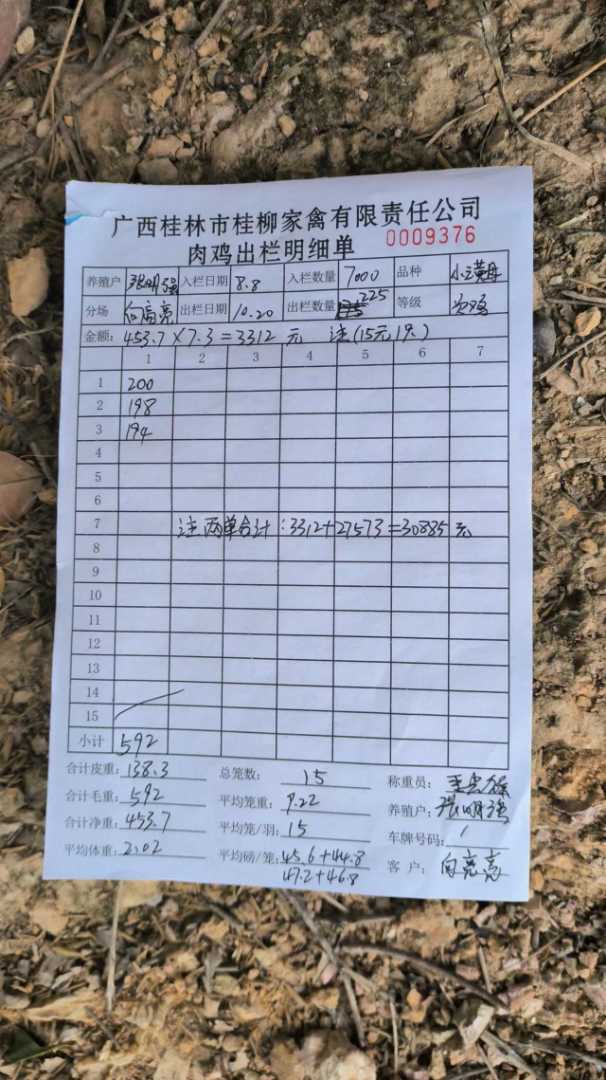 广西桂林市桂柳家禽有限责任公司
肉鸡出栏明细单 0009376
养殖户 张明强 入栏日期 8.8 入栏数量 7000 品种
分场 向亮亮 出栏日期 10.20 出栏数量 225 等级 次鸡
金额: 453.7×7.3=3312 元 注(15元1只)
1 2 3 4 5 6 7
1 200
2 198
3 194
4
5
6
7 注 两单合计:3312+27573=30885元
8
9
10
11
12
13
14
15
小计 592
合计皮重: 138.3 总笼数: 15 称重员:
合计毛重: 592 平均笼重: 9.22 养殖户: 张明强
合计净重: 453.7 平均笼/羽: 15 车牌号码: /
平均体重: 2.02 平均磅/笼: 45.6+44.8 客 户: 向亮亮
47.2+46.8